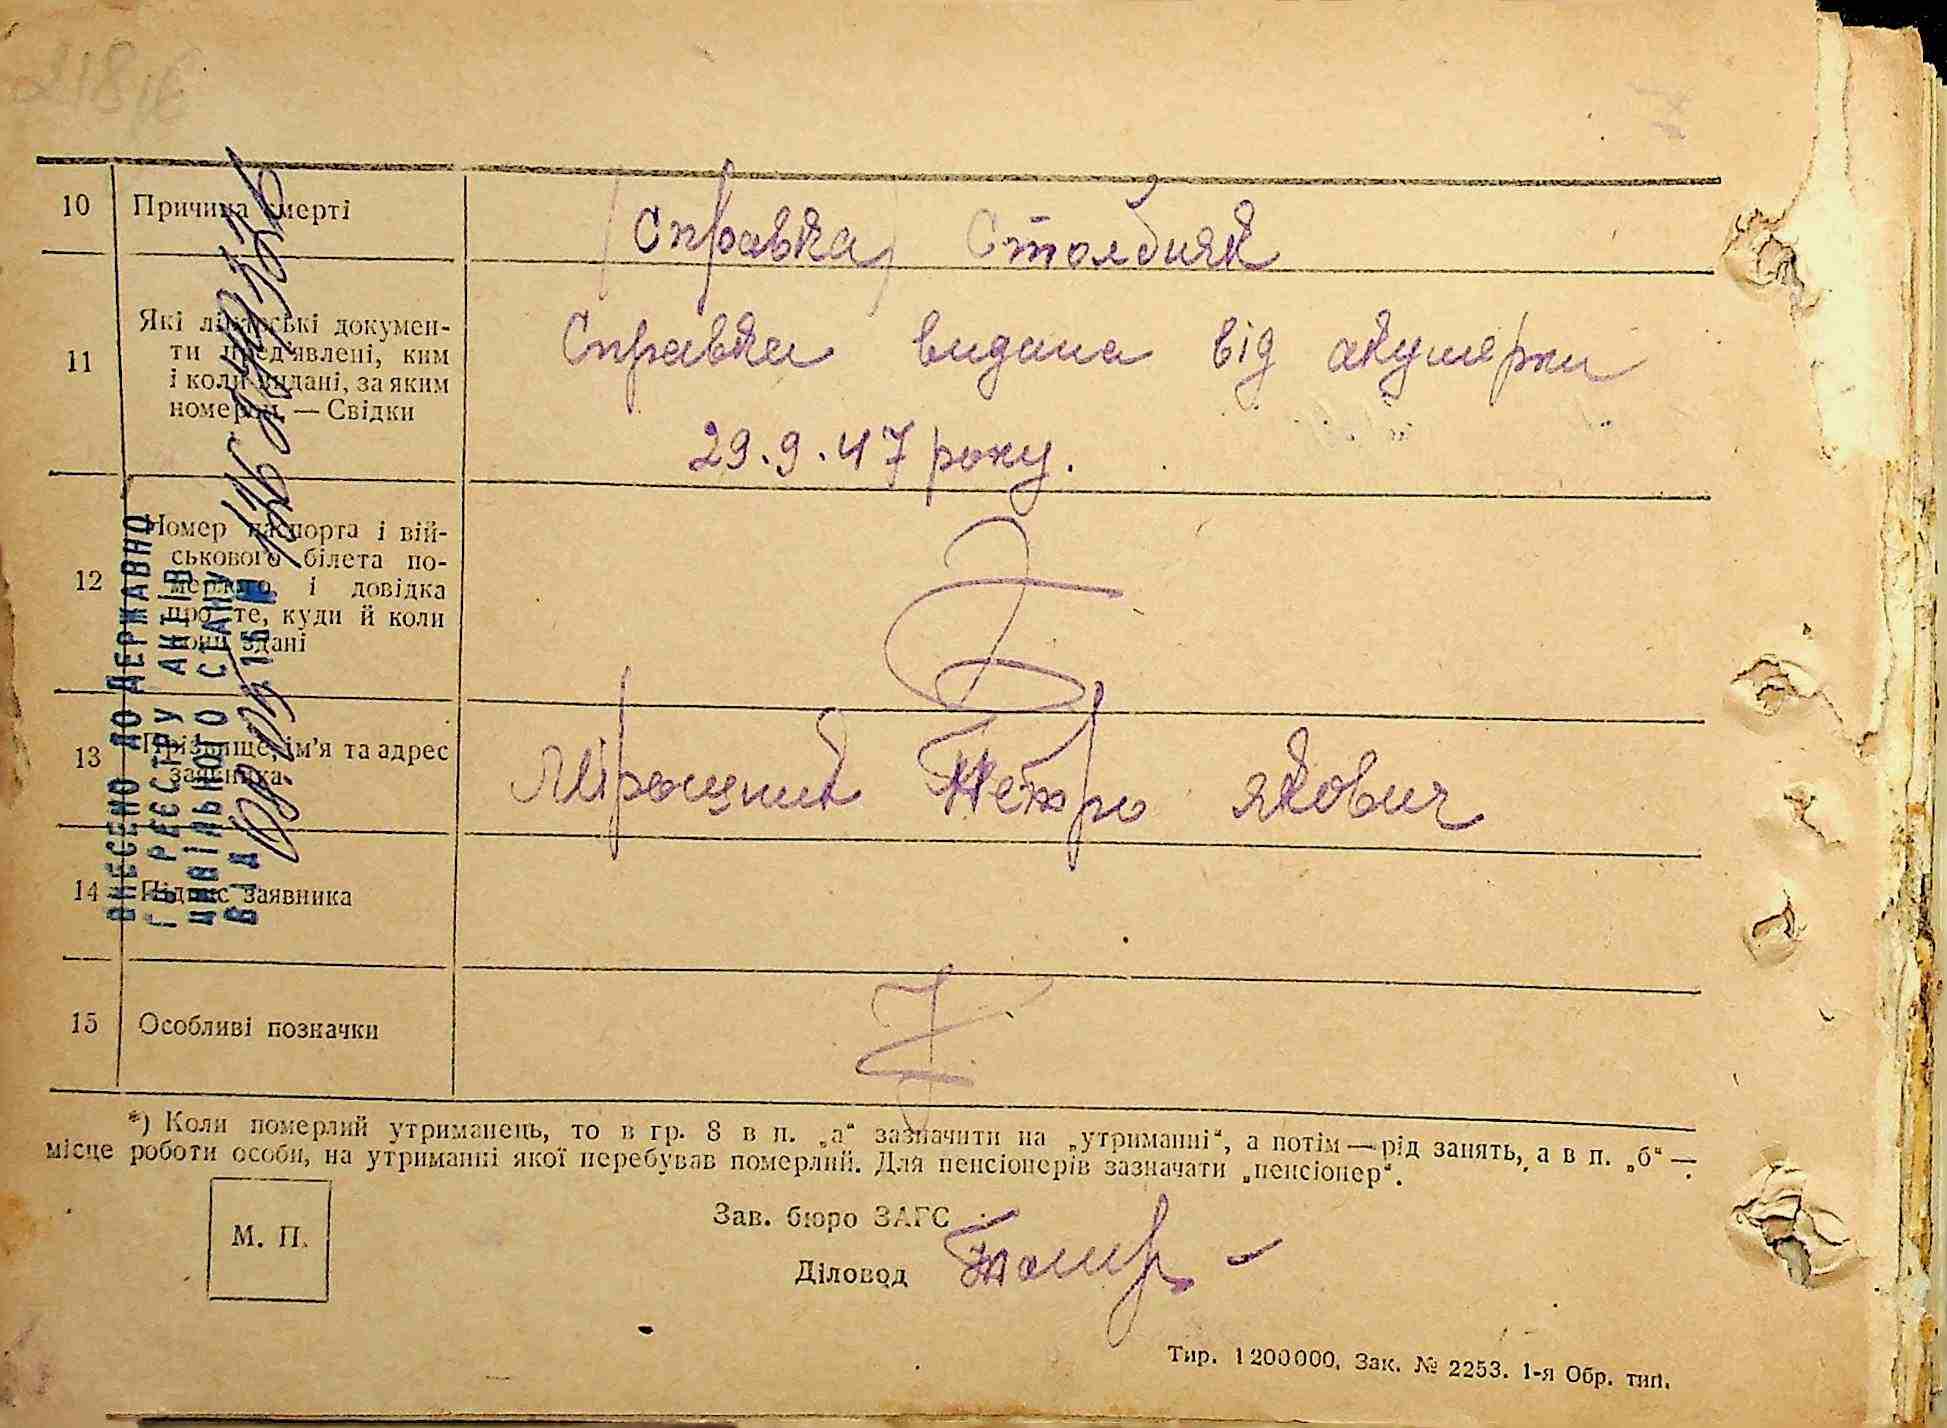 218
10 Причина смерті
(Справка) Столбняк
11 Які лікарські докумен-
ти пред'явлені, ким
і коли видані, за яким
номером. — Свідки
Справка видана від акушерки
29.9.47 року.
12 Номер паспорта і вій-
ськового білета по-
мерлого, і довідка
про те, куди й коли
вони здані
13 Прізвище, ім'я та адрес
заявника
Мірошник Петро Якович
14 Підпис заявника
15 Особливі позначки
*) Коли померлий утриманець, то в гр. 8 в п. „а“ зазначити на „утриманні“, а потім — рід занять, а в п. „б“ —
місце роботи особи, на утриманні якої перебував померлий. Для пенсіонерів зазначати „пенсіонер“.
М. П.
Зав. бюро ЗАГС
Діловод
Тир. 1200000. Зак. № 2253. 1-я Обр. тип.
ВНЕСЕНО ДО ДЕРЖАВНО
ГО РЕЄСТРУ АКТІВ
ЦИВІЛЬНОГО СТАНУ
ВІД